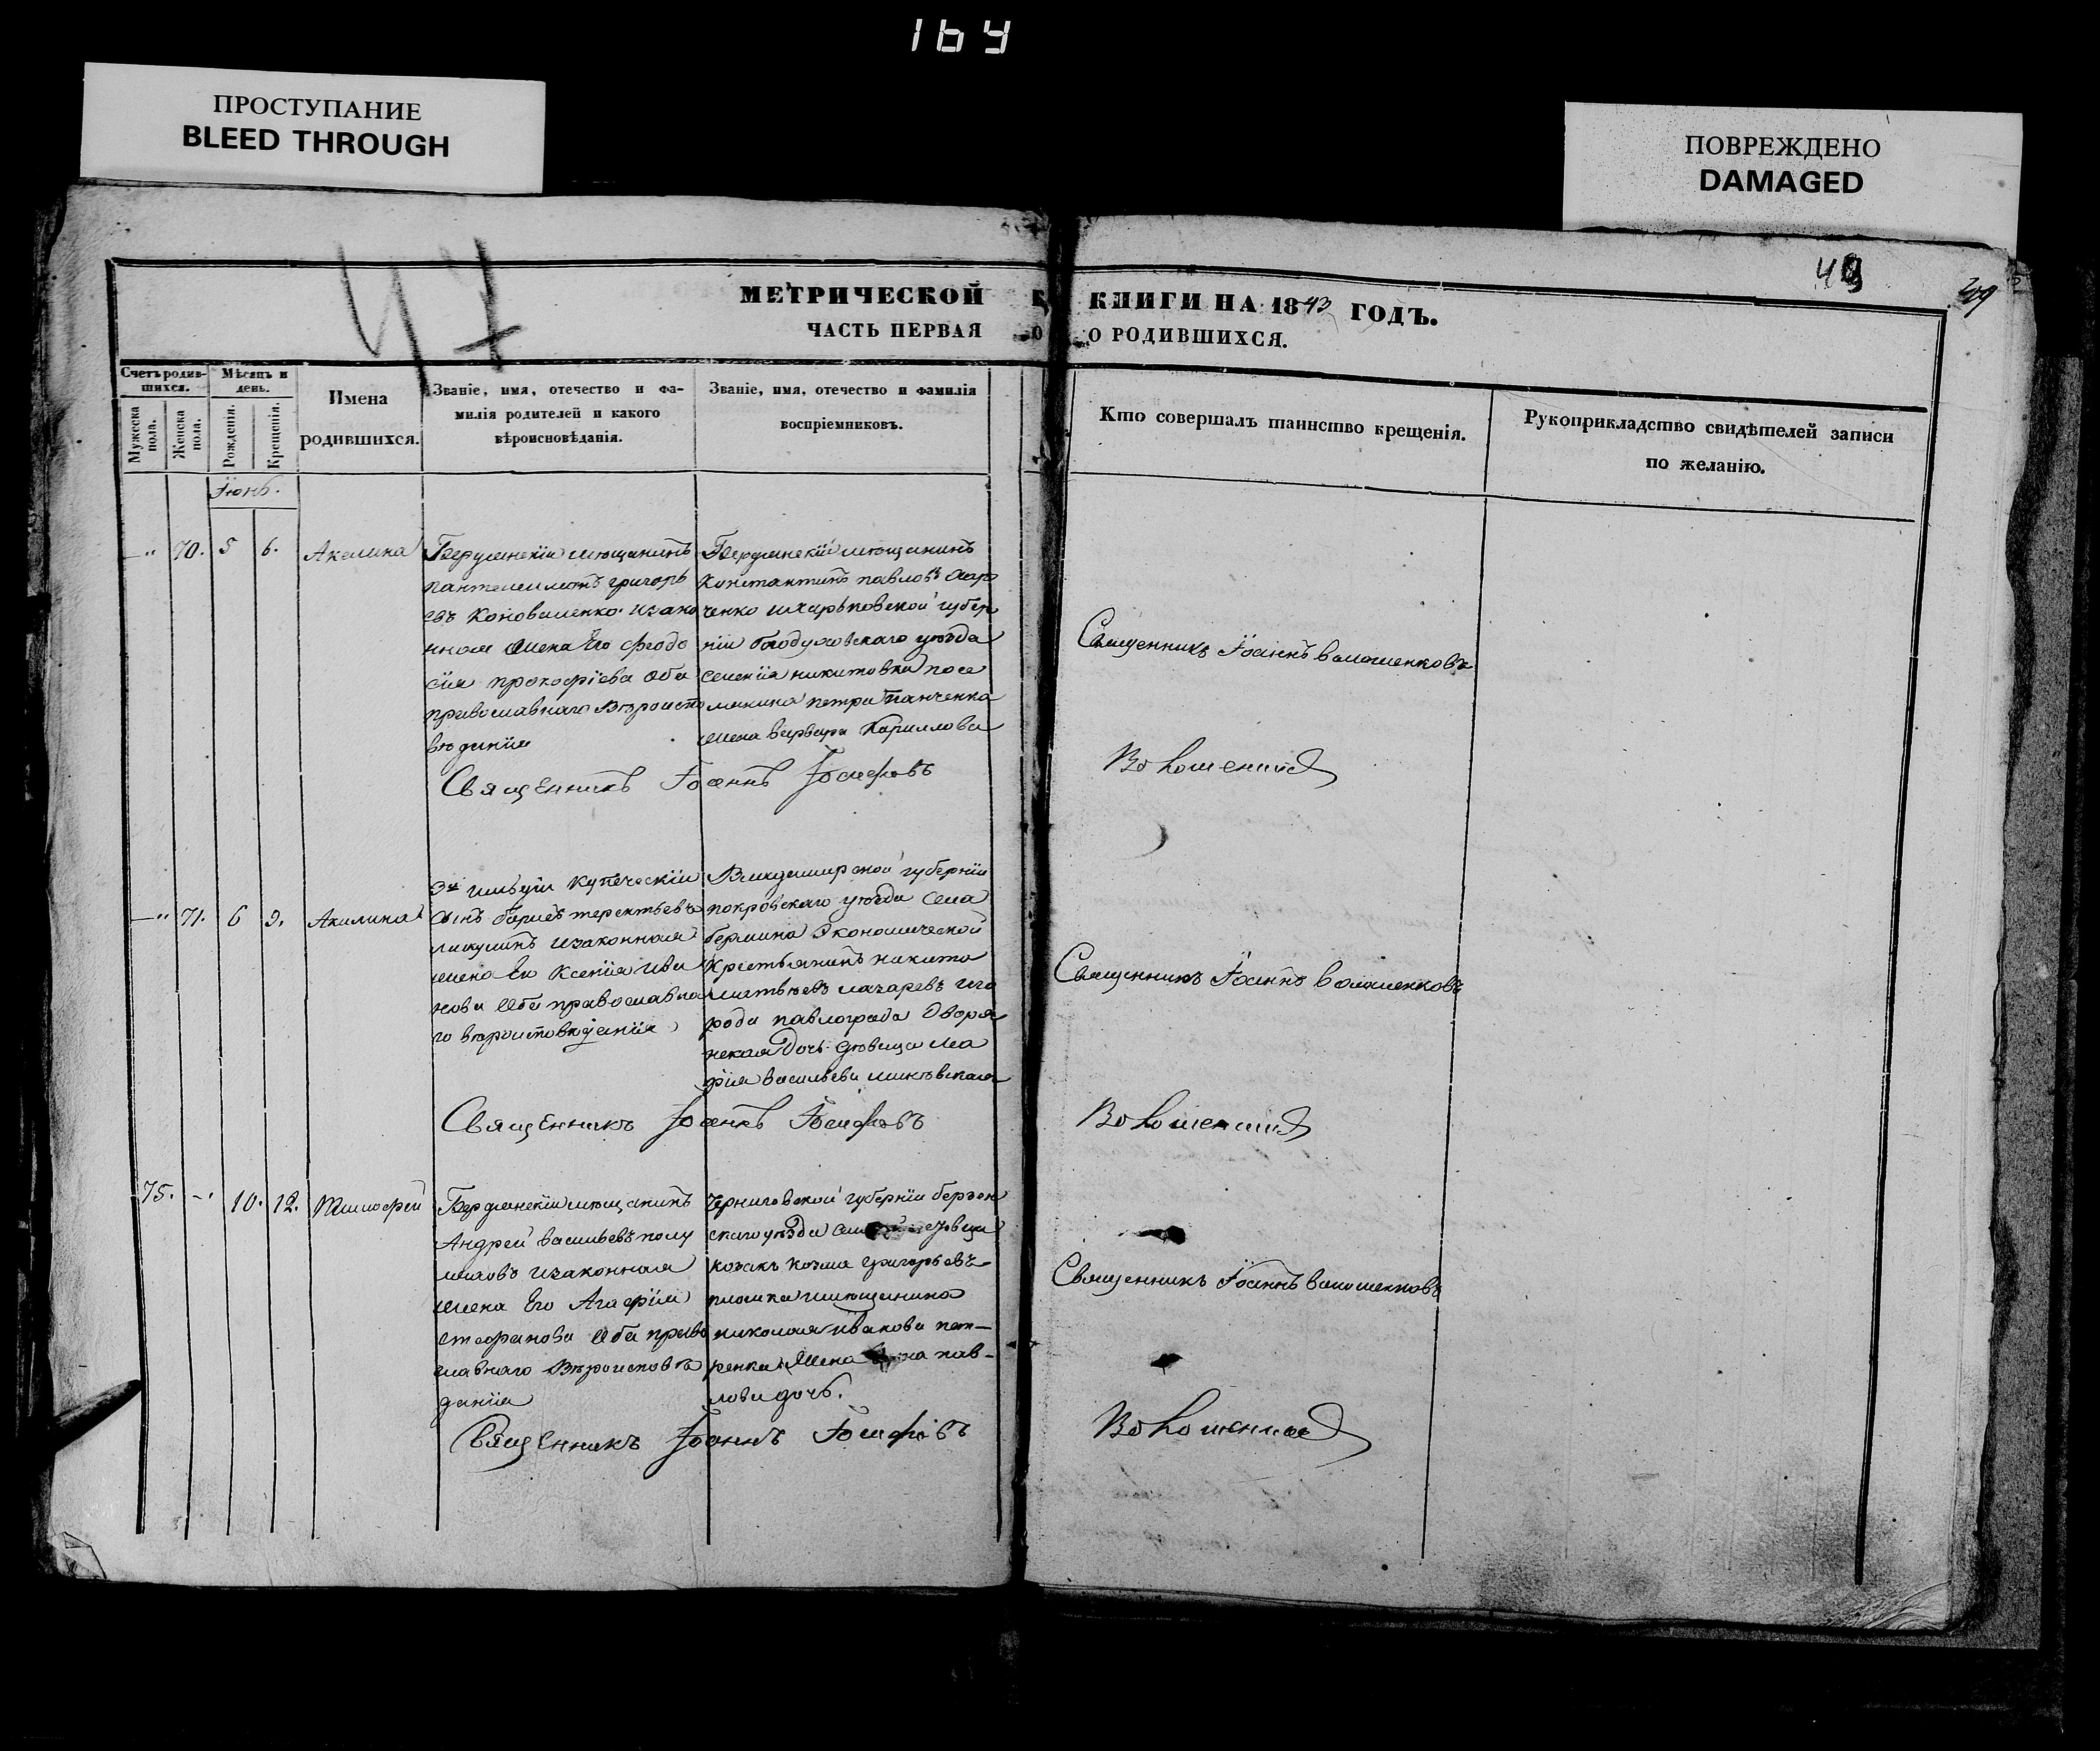 164
ПРОСТУПАНИЕ
BLEED THROUGH
ПОВРЕЖДЕНО
DAMAGED
47
49
МЕТРИЧЕСКОЙ
ЧАСТЬ ПЕРВАЯ
КНИГИ НА 1843 ГОДЪ.
О РОДИВШИХСЯ.
Счетъ родив-
шихся.
Мужеска пола.
Женска пола.
Мѣсяцъ и
день.
Рожденія.
Крещенія.
Имена
родившихся.
Званіе, имя, отечество и фа-
милія родителей и какого
вѣроисповѣданія.
Званіе, имя, отечество и фамилія
воспріемниковъ.
Кто совершалъ таинство крещенія.
Рукоприкладство свидѣтелей записи
по желанію.
Їюнь.
70. 5 6. Акилина
Бердянскїй мѣщанинъ
пантелеимонъ григорь
евъ Коноваленко изако
нная жена Его Феодо
сїя прокофїева Оба
православнаго Вѣроиспо
вѣданїя
Бердянскїй мѣщанинъ
Константинъ павловъ
ченко ихарьковской губер
нїи богодуховскаго уѣзда
селенїя никитовки посе
лянина петра Панченка
жена варвара Кирилова
Священникъ Їоаннъ Їосифовъ
Священникъ Їоаннъ волошенковъ
71. 6 9. Акилина
3й гильдїи Купеческїй
Сынъ терентьевъ
изаконная
жена Ег Ксенїя Ива
нова Оба православна
го вѣроисповѣданїя
Владимирской губернїи
покровскаго уѣзда Села
Экономической
Крестьянинъ никита
матвѣевъ лазаревъ иго
рода павлограда дворя
нская дочь дѣвица Ма
рїя васильева
Священникъ Їоаннъ Їосифовъ
Священникъ Їоаннъ волошенковъ
75. 10. 12. Тимофей
Бердянскїй мѣщанинъ
Андрей васильевъ
изаконная
жена Его Агафїя
стефанова Оба право
славнаго Вѣроисповѣ
данїя
Черниговской губернїи борзен
скаго уѣзда
козакъ козма григорьевъ
имѣщанина
николая иванова пет-
ренка Жена пав-
лова дочь.
Священникъ Їоаннъ Їосифовъ
Священникъ Їоаннъ волошенковъ